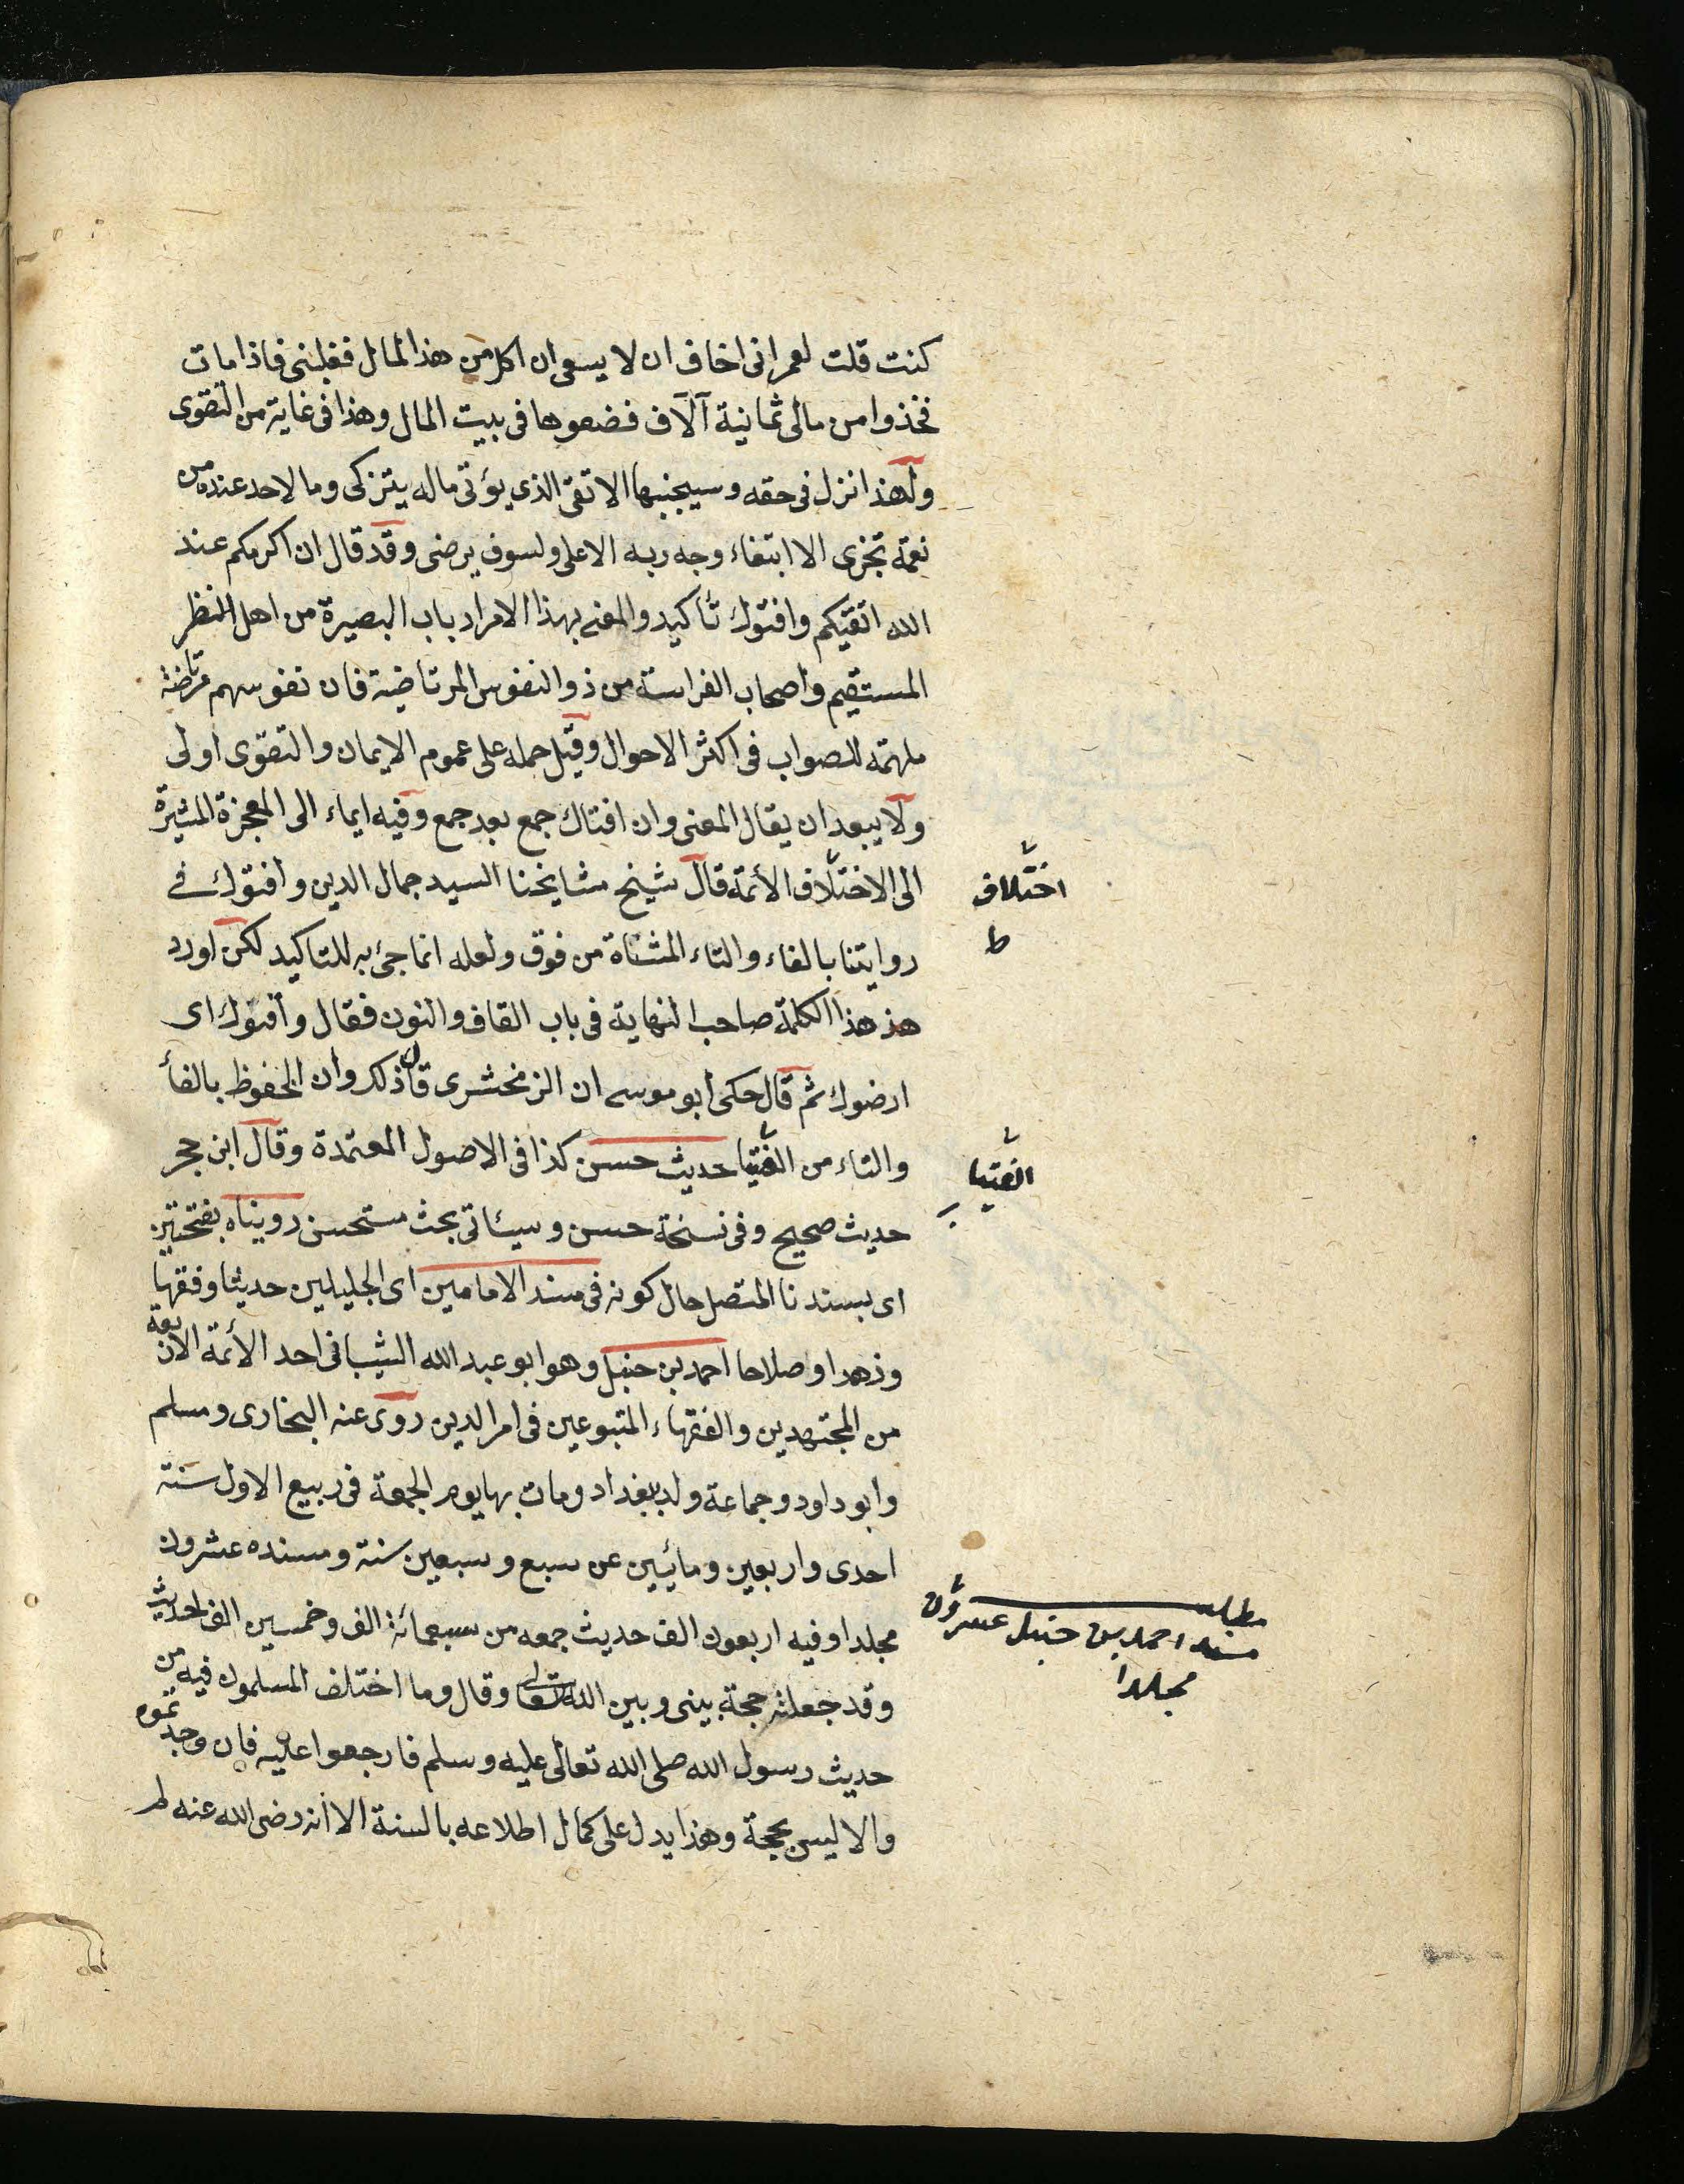 كنت قلت لعمر انى اخاف ان لا يسعى ان اكل من هذا المال فغلبنى فاذا مات
فخذوا من مالى ثمانية آلاف فضعوها فى بيت المال وهذا فى غاية من التقوى
ولهذا انزل فى حقه وسيجنبها الاتقى الذى يؤتى ماله يتزكى وما لاحد عنده من
نعمة تجزى الا ابتغاء وجه ربه الاعلى ولسوف يرضى وقد قال ان اكرمكم عند
الله اتقيكم وافتوك تأكيد والمعنى بهذا الامر ارباب البصيرة من اهل النظر
المستقيم واصحاب الفراسة من ذو النفوس المرتاضية فان نفوسهم مرتاضة
ملهمة للصواب فى اكثر الاحوال وقيل حمله على عموم الايمان والتقوى اولى
ولا يبعد ان يقال المعنى وان افتاك جمع بعد جمع وفيه ايماء الى المعجزة المشيرة
الى الاختلاف الأئمة قال شيخ مشايخنا السيد جمال الدين وافتوك فى
روايتنا بالفاء والتاء المثناة من فوق ولعله انما جئ به للتاكيد لكن اورد
هذ هذا الكلمة صاحب النهاية فى باب القاف والنون فقال وأقنوك اى
ارضوك ثم قال حكى ابو موسى ان الزمخشرى قال ذلك وان المحفوظ بالفأ
والتاء من الفتيا حديث حسن كذا فى الاصول المعتمدة وقال ابن حجر
حديث صحيح وفى نسخة حسن وسيأتى بحث مستحسن رويناه بفتحتين
اى بسندنا المتصل حال كونه فى مسند الامامين اى الجليلين حديثا وفقها
وزهدا وصلاحا احمد بن حنبل وهو ابو عبد الله الشيبانى احد الأئمة الاربعة
من المجتهدين والفقهاء المتبوعين فى امر الدين روى عنه البخارى ومسلم
وابو داود وجماعة ولد ببغداد ومات بها يوم الجمعة فى ربيع الاول سنة
احدى واربعين ومائيين عن سبع وسبعين سنة ومسنده عشرون
مجلدا وفيه اربعون الف حديث جمعه من سبعمائة الف وخمسين الف حديث
وقد جعلته حجة بينى وبين الله تعالى وقال وما اختلف المسلمون فيه من
حديث رسول الله صلى الله تعالى عليه وسلم فارجعوا عليه فان وجدتموه
والا ليس بحجة وهذا يدل على كمال اطلاعه بالسنة الا انه رضى الله عنه لم
اختلاف
ط
الفتيا
مطلب
مسند احمد بن حنبل عشرون
مجلدا